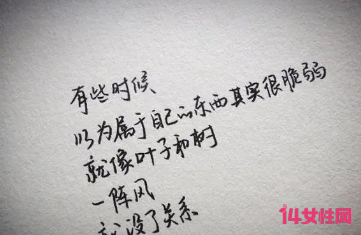 有些时候
以为属于自己的东西其实很脆弱
就像叶子和树
一阵风
就没了关系
14女性网